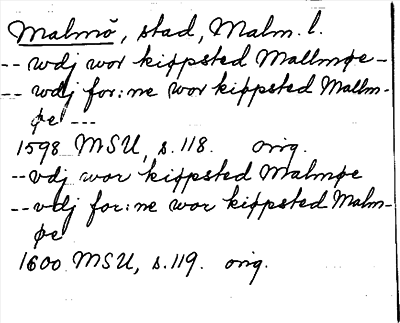 Malmö, stad, Malm. l.
-- wdj wor kiøpsted Mallmøe -
-- wdj for:ne wor kiøpsted Mallm-
øe ---
1598 MSU, s. 118. orig.
-- vdj wor kiøpsted Malmøe
-- vdj for:ne wor kiøpsted Malm-
øe
1600 MSU, s. 119. orig.